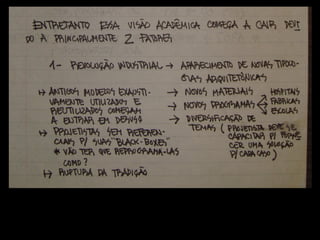 ENTRETANTO ESSA VISÃO ACADÊMICA COMEÇA A CAIR DEVI
DO A PRINCIPALMENTE 2 FATORES
1- REVOLUÇÃO INDUSTRIAL → APARECIMENTO DE NOVAS TIPOLO
GIAS ARQUITETÔNICAS
↳ ANTIGOS MODELOS EXAUSTI
VAMENTE UTILIZADOS E
REUTILIZADOS COMEÇAM
A ENTRAR EM DESUSO
↳ PROJETISTAS SEM REFEREN
CIAS P/ SUAS "BLACK-BOXES"
* VÃO TER QUE REPROGRAMÁ-LAS
COMO?
↳ RUPTURA DA TRADIÇÃO
→ NOVOS MATERIAIS
→ NOVOS PROGRAMAS
HOSPITAIS
FÁBRICAS
ESCOLAS
→ DIVERSIFICAÇÃO DE
TEMAS (PROJETISTA DEVE SE
CAPACITAR P/
CER UMA SOLUÇÃO
P/ CADA CASO)